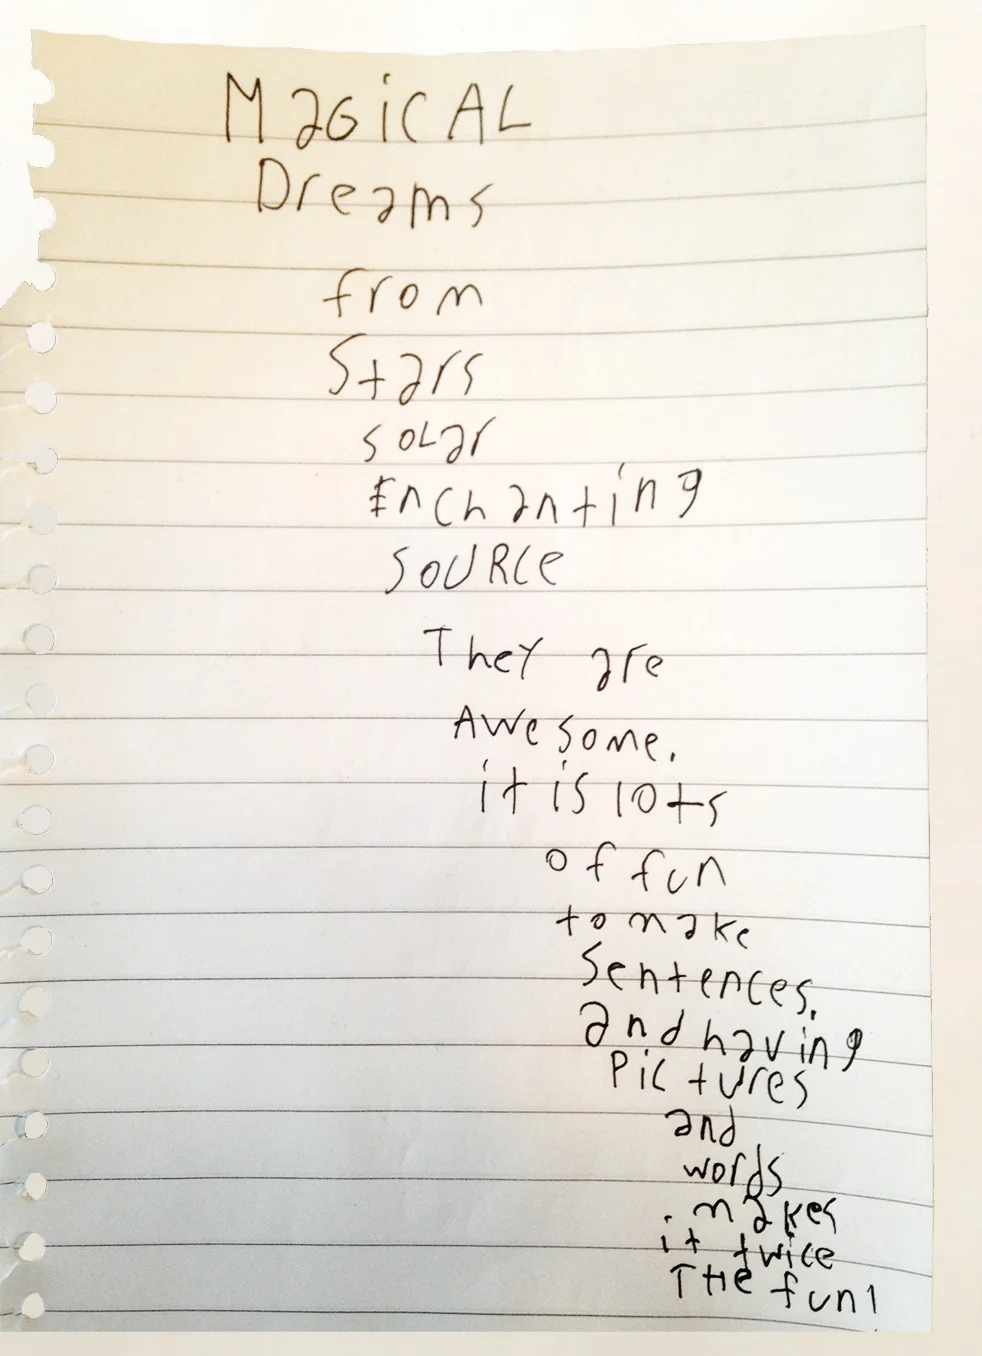 MagiCAL
Dreams
from
Stars
soLar
Enchanting
SOURCe
They are
AWesome.
it is lots
of fun
to make
Sentences.
and having
PiCtures
and
words
makes
it twice
THe fun!